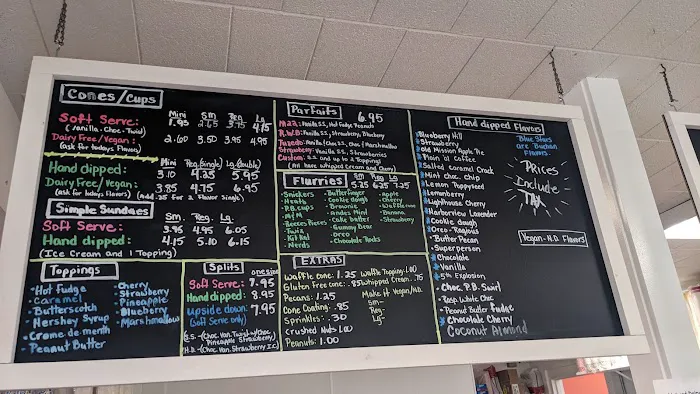 Cones/Cups
Mini Sm Reg Lg
Soft Serve: 1.95 2.65 3.75 4.15
(Vanilla-Choc-Twist)
Dairy Free/Vegan: 2.60 3.50 3.95 4.95
(ask for todays flavor)
Mini Reg(Single) Lg(Double)
Hand dipped: 3.10 4.25 5.95
Dairy Free/Vegan: 3.85 4.75 6.95
(Ask for todays flavors) (Add .35 For 2 flavor Single)
Simple Sundaes
Sm. Reg. Lg.
Soft Serve: 3.95 4.95 6.05
Hand dipped: 4.15 5.10 6.15
(Ice Cream and 1 Topping)
Toppings
-Hot fudge
-Caramel
-Butterscotch
-Hershey Syrup
-Creme de menth
-Peanut Butter
-Cherry
-Strawberry
-Pineapple
-Blueberry
-Marshmallow
Splits
one size
Soft Serve: 7.95
Hand dipped: 8.95
Upside down: 7.95
(Soft Serve only)
S.S.-(Choc. Van. Twist w/Choc
Pineapple Strawberry)
H.D.-(Choc Van. Strawberry I.C.)
Parfaits 6.95
Vanilla SS, Hot Fudge Peanuts
R.W.B: Vanilla SS, Strawberry, Blueberry
Tuxedo: Vanilla/Choc SS, Choc/Marshmallow
Strawberry: Vanilla SS, Strawberry
Custom: SS and up to 2 Toppings
(All have whipped Cream and Cherry)
Flurries
Sm Reg Lg
5.25 6.25 7.25
-Snickers
-Heath
-P.B. cups
-M/M
-Reeces Pieces
-Twix
-Kit Kat
-Nerds
-Butterfinger
-Cookie dough
-Brownie
-Andes Mint
-Cake batter
-Gummy Bear
-Oreo
-Chocolate Rocks
-Apple
-Cherry
-Waffle cone
-Banana
-Strawberry
EXTRAS
Waffle cone: 1.25
Gluten Free cone: .85
Pecans: 1.25
Cone Coating: .85
Sprinkles: .30
Crushed Nuts 1.00
Peanuts: 1.00
Waffle Topping 1.00
Whipped Cream .75
Make it Vegan/N.D.
Sm-
Reg-
Lg-
Hand dipped Flavors
Blueberry Hill
Strawberry
Old Mission Apple Pie
Plain ol' Coffee
Salted Caramel Crack
Mint choc. chip
Lemon Poppyseed
Lemonberry
Lighthouse Cherry
Harborview Lavender
Cookie dough
Oreo-Rageous
-Butter Pecan
Superperson
Chocolate
Vanilla
5th Explosion
-Choc. P.B. Swirl
-Rasp. White Choc
-Peanut Butter Fudge
Chocolate Cherry
Coconut Almond
Blue Stars
are
Flavors
Prices
Include
TAX
Vegan-N.D. Flavors